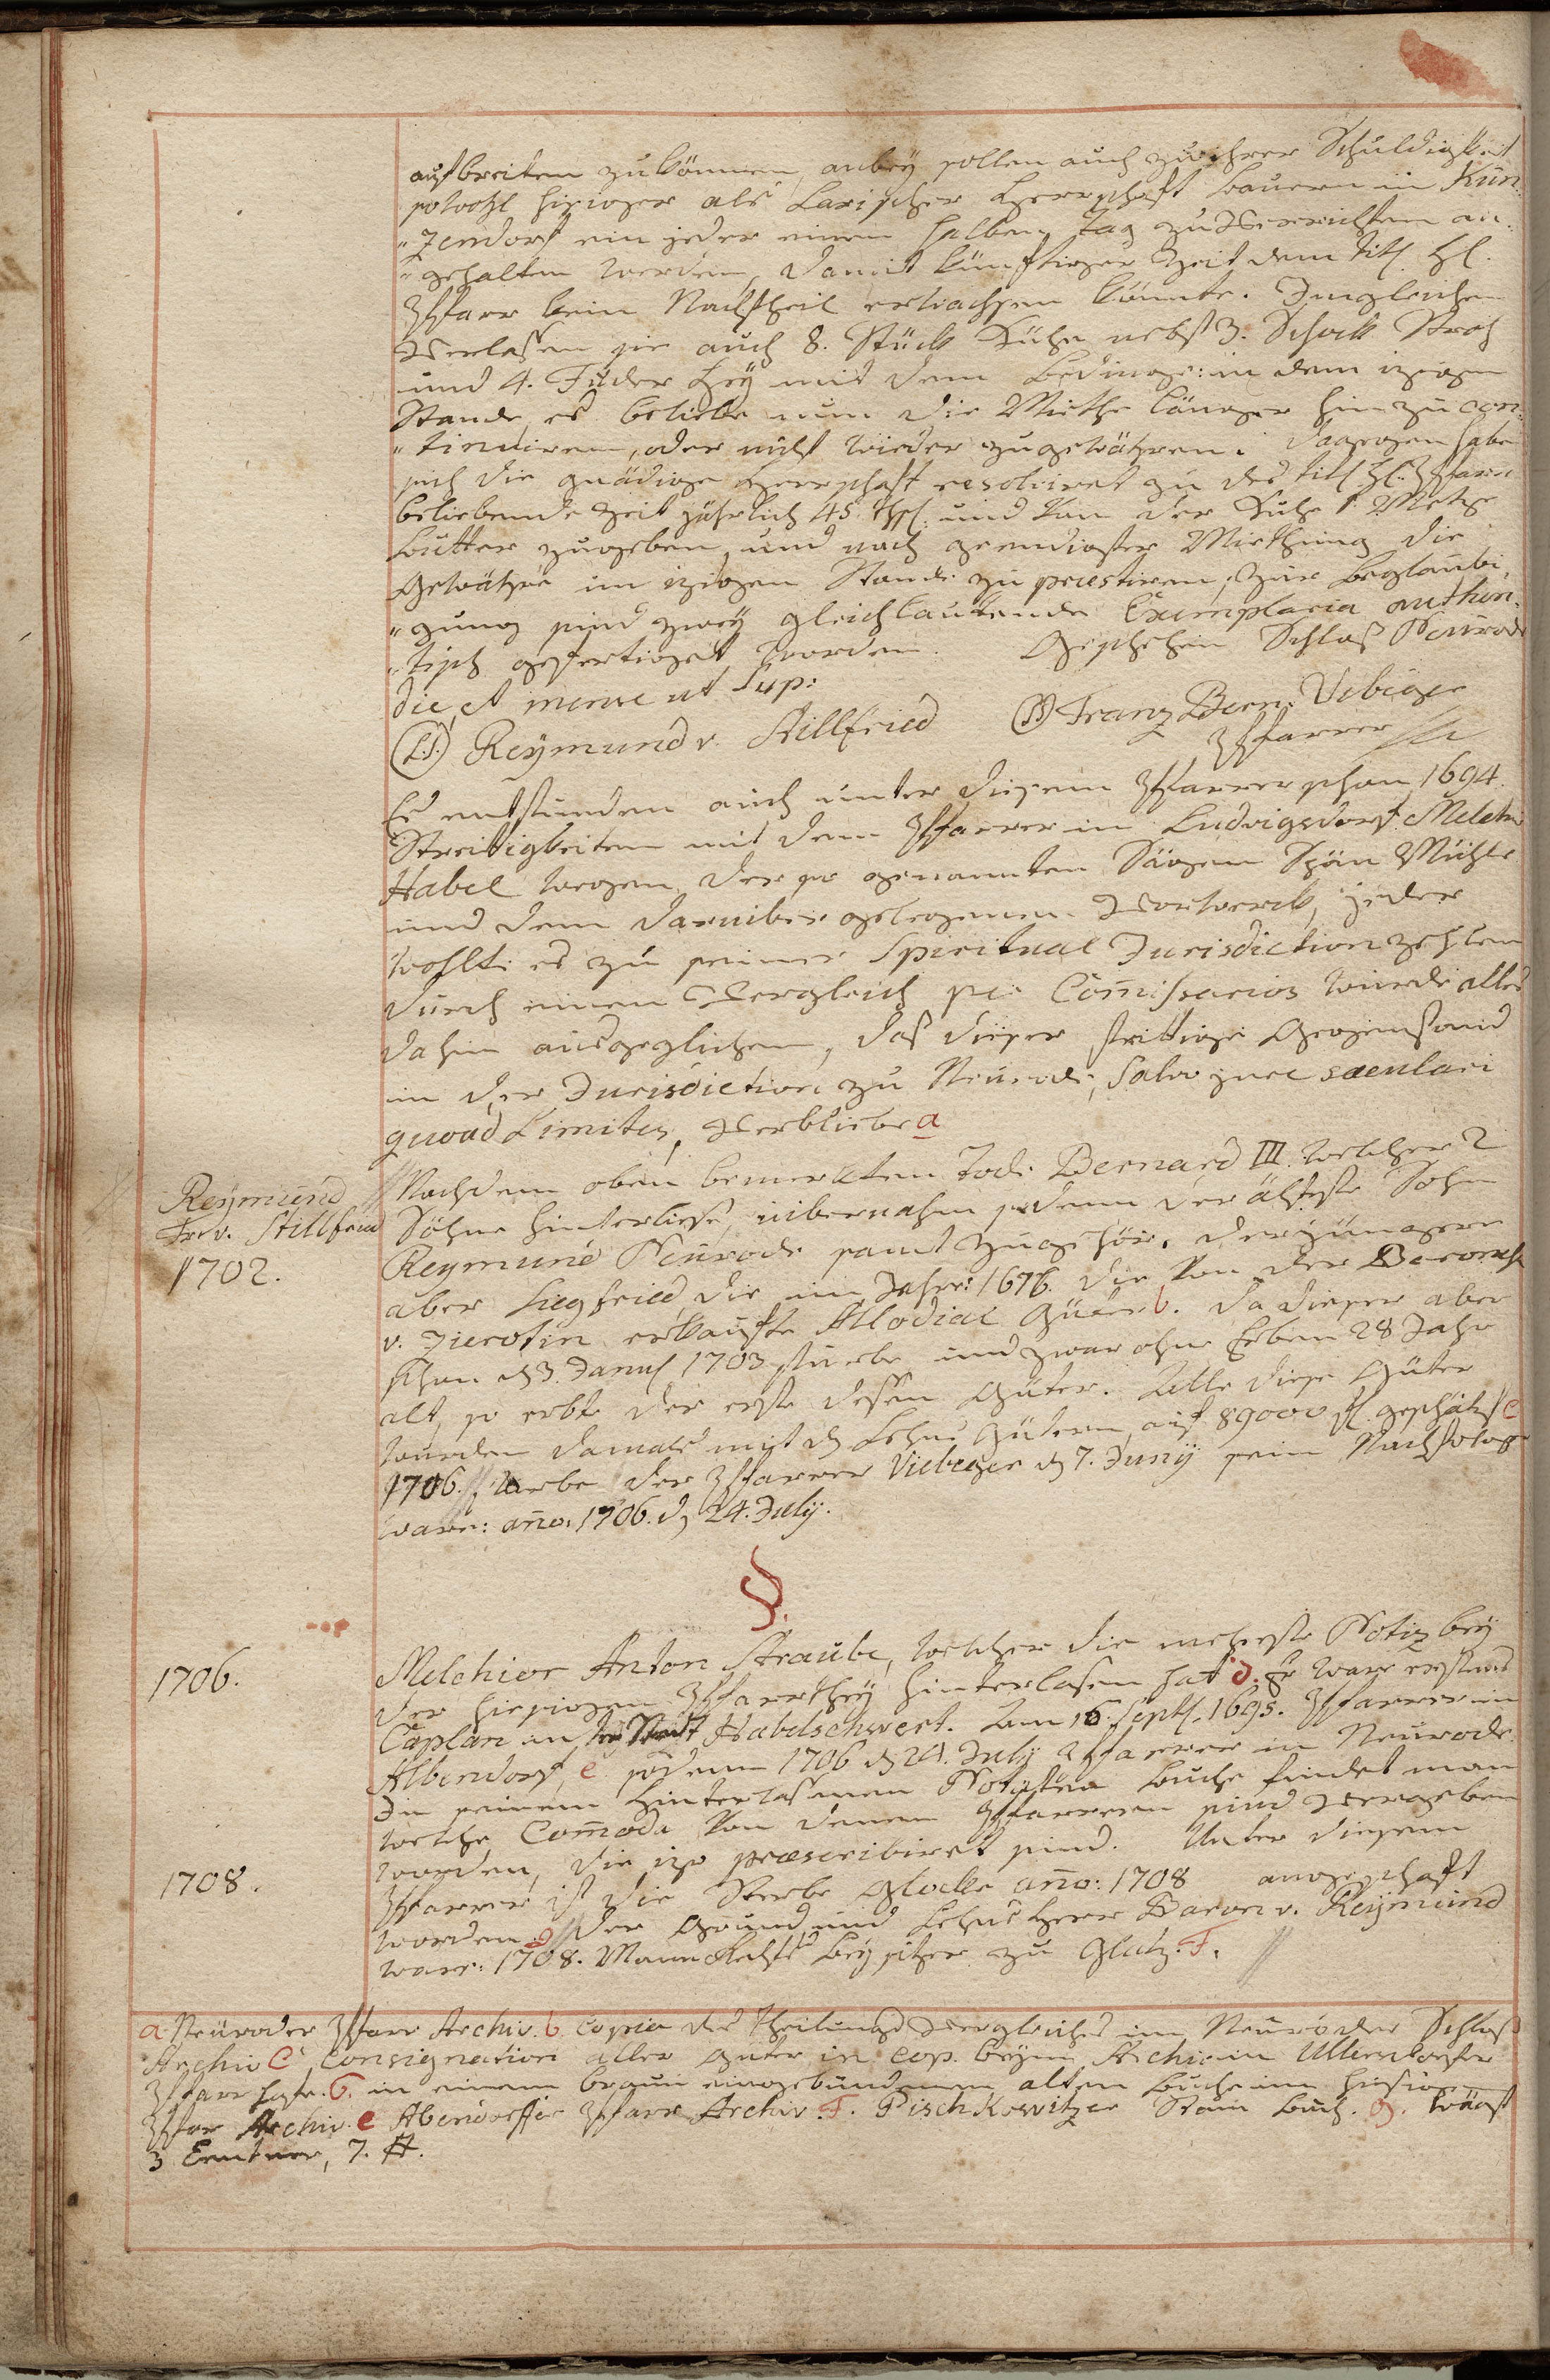 ausbreiten zu können, anbey sollen auch zu ihrer Schuldigkeit
sowohl hisiger als Larischer Herrschaft Bauern in Kun„
„zendorf ein jeder einen halben Tag zu Verrichten an„
„gehalten werden, damit künftiger Zeit dem Titl. Hl.
Pfarr kein Nachtheil erwachsen könnte. Ingleichen
Verlaßen sie auch 8. Stück Kühe nebst 3. Schock Stroh
und 4. Fuder Hey mit dem Bedinge: in dem izigen
Stande, es beliebe nun die Miethe länger hin zu con„
„tinuiren, oder nicht wieder zugewähren. dagegen habe
sich die gnädige Herrschaft resolviret zu des Titl. Hl. Pfarr
beliebende Zeit jährlich 45 Thl. und Von der Kuhe 1 Metze
Butter zugeben, und nach geendigter Miethung die
Gewähre im izigen Stande zu præstiren, zur Beglaubi„
„gung sind zwey gleichlautende Exemplaria authen„
„tisch gefertiget worden. Geschehen Schloß Neurode
die et mense ut sup:
(L.S.) Reymund v. Stillfried Franz Bern. Vebiger
Pfarrer
Es entstunden auch unter diesem Pfarrer schon 1694.
Streitigkeiten mit dem Pfarrer in Ludvigsdorf Melchior
Habel wegen der so genannten Mühle
und dem darnüber gelegenen Vorwerck, jeder
wollte es zu seiner Spiritual Jurisdiction zehlen
durch einen Vergleich per Com̄issarios wurde alles
dahin ausgeglichen, daß dieser strittige Gegenstand
in der Jurisdiction zu Neurode, salvo jure sæculari
quoad Limites, Verbliebe a
Reymund Nachdem oben bemerkten Tode Bernard III. welcher 2
Fr. v. Stillfried Söhne hinterließe, übernahm sodenn der älteste Sohn
1702. Reymund Neurode samt Zugehör, der jüngere
aber Siegfried, die im Jahre: 1676. die Von der Baronesse
v. Zierotin erkaufte Allodial Güter b. da dieser aber
schon d. 3. Januʃ 1703 sturbe und zwar ohne Erben 28 Jahr
alt, so erbte der erste dessen Güter. Alle diese Güter
wurden damals mit d. Lehns Gütern auf 89000 fl. geschätzt c
1706. sturbe der Pfarrer Viebeger d. 7. Juny sein Nachfolger
ware: an̄o. 1706. d. 24. July.
§.
1706. Melchior Anton Straube, welcher die mehreste Notiz bey
der hiesigen Pfarrthey hinterlaßen hat d. Er ware erstens
Caplan in der Stadt Habelschwert. dann 16. Septʃ. 1695. Pfarrer in
Albendorf, e sodenn 1706 d. 24. July Pfarrer in Neurode.
In seinem hinterlaßenen Notaten Buche findet man
welche Com̄oda Von denen Pfarrern sind Vergeben
worden, die izo præscribiret sind. Unter diesem
1708. Pfarrer ist die Sterbe Glocke an̄o: 1708 angeschaft
worden. g der Grund und Lehns Herr Baron v. Reymund
ware: 1708. Mann Rechts Beysitzer zu Glatz. F.
a Neuroder Pfarr Archiv. b. Copia des Theilungs Vergleiches im Neuroder Schloß
Archiv C Consignation aller Guter in Cop. beym Archiv in Ullersdorfer
Pfarr 6. in einem braun eingebundenen alten Buche im hiesigen
Pfarr Archiv. e Abendorffer Pfarr Archiv. F. Pischkowitzer Stam Buch. g. wägt
3 Centner, 7. ℔.